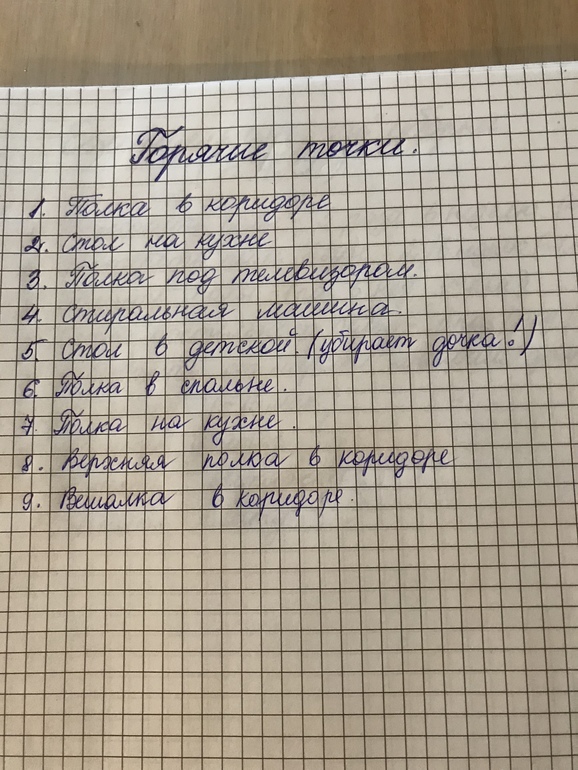 Горячие точки.
1. Полка в коридоре
2. Стол на кухне
3. Полка под телевизором.
4. Стиральная машина.
5. Стол в детской. (убирает дочка!)
6. Полка в спальне.
7. Полка на кухне.
8. Верхняя полка в коридоре
9. Вешалка в коридоре.